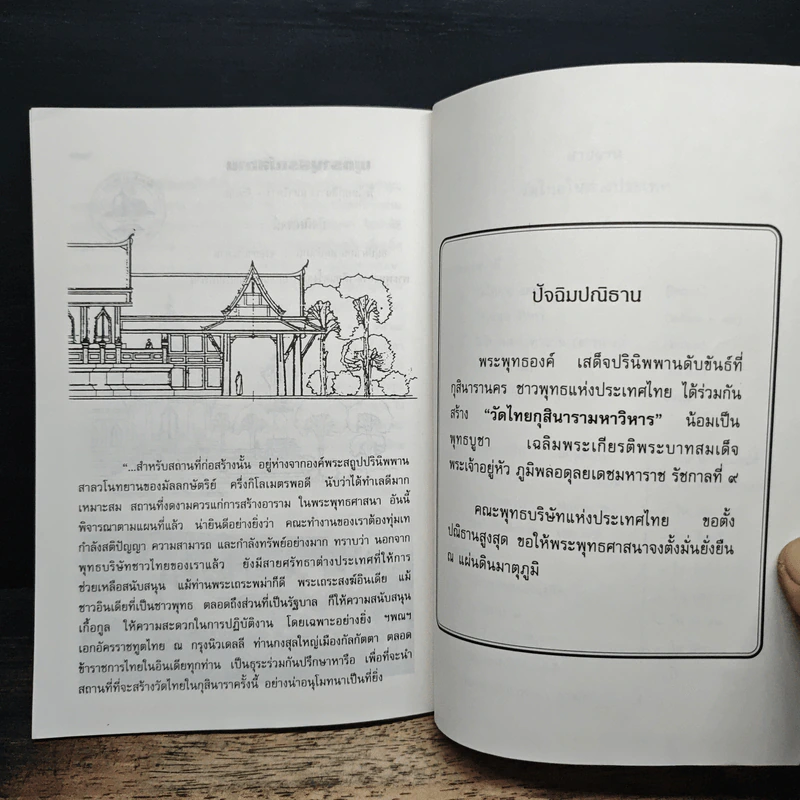 “...สำหรับสถานที่ก่อสร้างนั้น อยู่ห่างจากองค์พระสถูปปรินิพพาน
สาลวโนทยานของมัลลกษัตริย์ ครึ่งกิโลเมตรพอดี นับว่าได้ทำเลดีมาก
เหมาะสม สถานที่งดงามควรแก่การสร้างอาราม ในพระพุทธศาสนา อันนี้
พิจารณาตามแผนที่แล้ว น่ายินดีอย่างยิ่งว่า คณะทำงานของเราต้องทุ่มเท
กำลังสติปัญญา ความสามารถ และกำลังทรัพย์อย่างมาก ทราบว่า นอกจาก
พุทธบริษัทชาวไทยของเราแล้ว ยังมีสายศรัทธาต่างประเทศที่ให้การ
ช่วยเหลือสนับสนุน แม้ท่านพระเถระพม่าก็ดี พระเถระสงฆ์อินเดีย แม้
ชาวอินเดียที่เป็นชาวพุทธ ตลอดถึงส่วนที่เป็นรัฐบาล ก็ให้ความสนับสนุน
เกื้อกูล ให้ความสะดวกในการปฏิบัติงาน โดยเฉพาะอย่างยิ่ง ฯพณฯ
เอกอัครราชทูตไทย ณ กรุงนิวเดลลี ท่านกงสุลใหญ่เมืองกัลกัตตา ตลอด
ข้าราชการไทยในอินเดียทุกท่าน เป็นธุระร่วมกันปรึกษาหารือ เพื่อที่จะนำ
สถานที่ที่จะสร้างวัดไทยในกุสินาราครั้งนี้ อย่างน่าอนุโมทนาเป็นที่ยิ่ง
ปัจฉิมปณิธาน
พระพุทธองค์ เสด็จปรินิพพานดับขันธ์ที่
กุสินารานคร ชาวพุทธแห่งประเทศไทย ได้ร่วมกัน
สร้าง “วัดไทยกุสินารามหาวิหาร” น้อมเป็น
พุทธบูชา เฉลิมพระเกียรติพระบาทสมเด็จ
พระเจ้าอยู่หัว ภูมิพลอดุลยเดชมหาราช รัชกาลที่ ๙
คณะพุทธบริษัทแห่งประเทศไทย ขอตั้ง
ปณิธานสูงสุด ขอให้พระพุทธศาสนาจงตั้งมั่นยั่งยืน
ณ แผ่นดินมาตุภูมิ